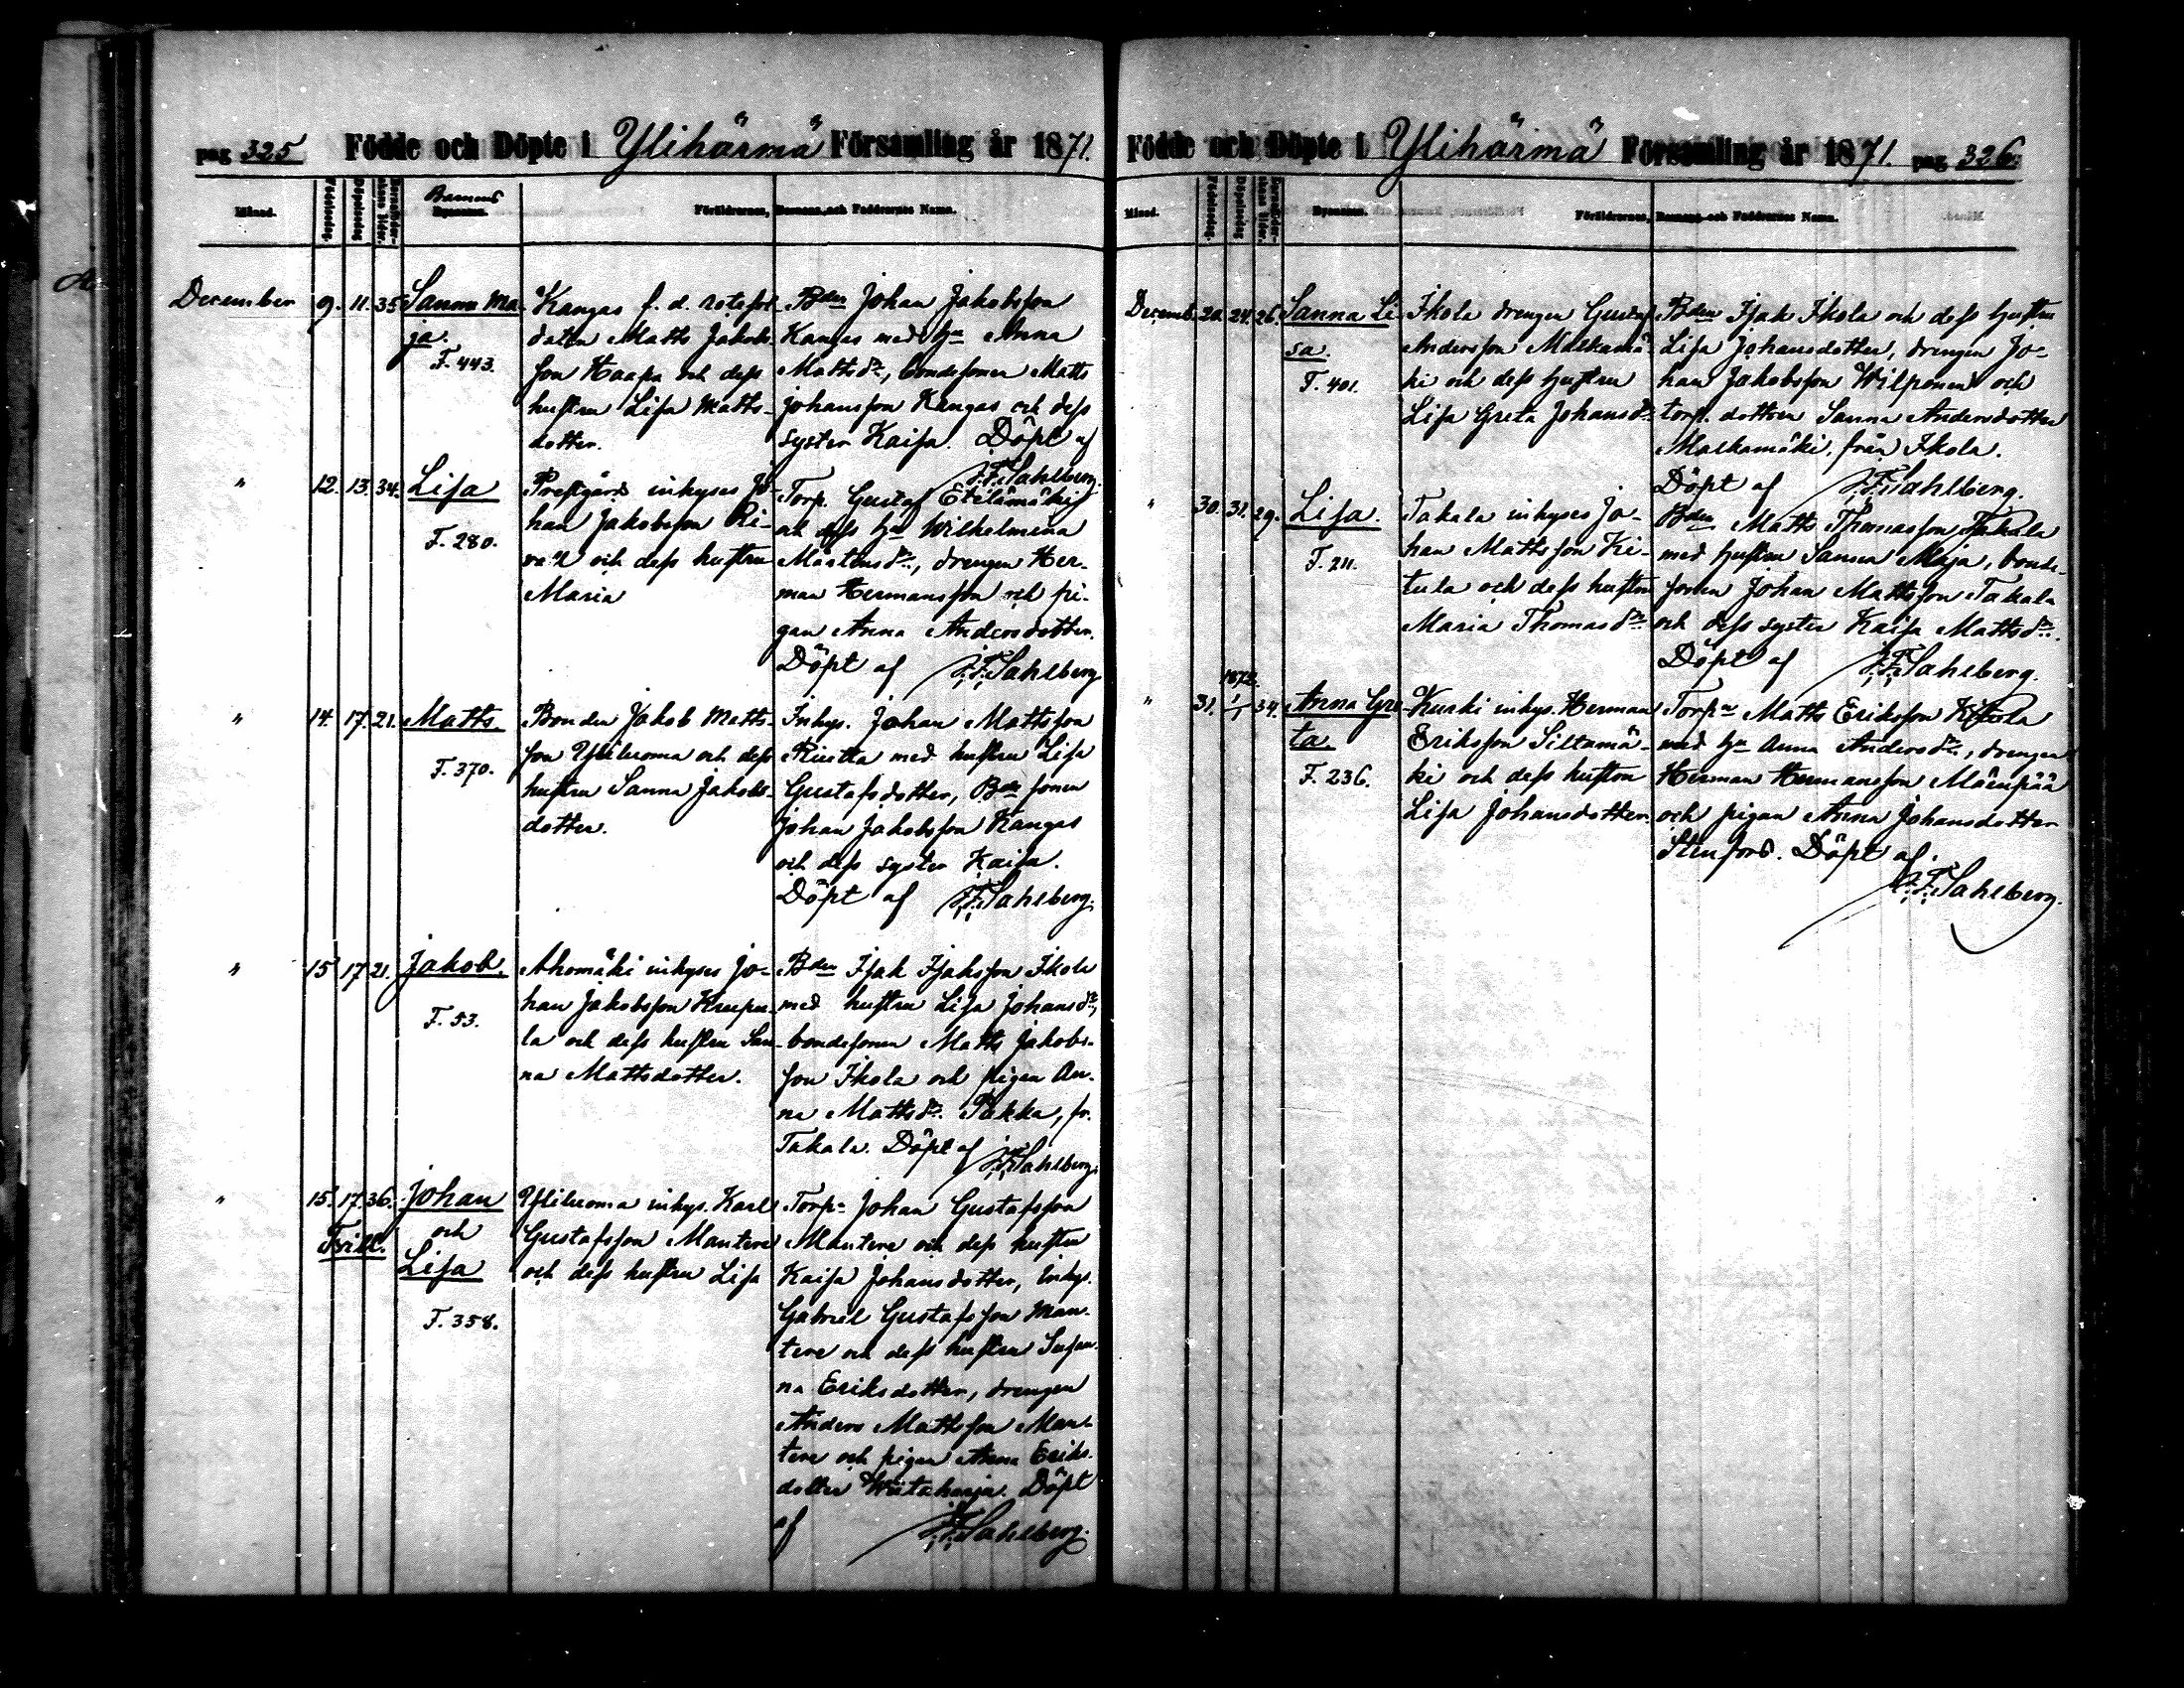 pag 325 Födde och Döpte i Ylihärmä Församling år 1871.
Månad. Födelsedag. Döpelsedag Barnens Dynamen. Föräldrarnes, Barnens och Faddrarnes Namn.
December 9. 11. 35 Sanna Ma-
ja.
F. 443.
Kangas f. d. rotesol-
daten Matts Jakobs-
son Haapa och dess
hustru Lisa Matts-
dotter.
Bden Johan Jakobsson
Kangas med hu Anna
Mattsdr, bondesonen Matts
Johansson Kangas och dess
syster Kaisa. Döpt af
J. F. Sahlberg.
" 12. 13. 34. Lisa
F. 280.
Prestgårds inhyses Jo-
han Jakobsson
och dess hustru
Maria
Torp. Gustaf Etelämäki
och dess hu Wilhelmina
Mårtensdr, drengen Her-
man Hermansson och pi-
gan Anna Andersdotter.
Döpt af J. F. Sahlberg
" 14. 17. 21. Matts.
F. 370.
Bonden Jakob Matts-
son Yliluoma och dess
hustru Sanna Jakobs-
dotter.
Inhys. Johan Mattsson
med hustru Lisa
Gustafsdotter, Bde sonen
Johan Jakobsson Kangas
och dess syster Kaisa.
Döpt af J. F. Sahlberg.
" 15 17 21. Jakob.
F. 53.
Ahomäki inhyses Jo-
han Jakobsson
la och dess hustru San-
na Mattsdotter.
Bden Isak Isaksson Ikola
med hustru Lisa Johansdr,
bondesonen Matts Jakobs-
son Ikola och pigan An-
na Mattsdr. Pukka, fr.
Takala. Döpt af J. F. Sahlberg.
" 15. 17. 36. Johan
Tvill. och
Lisa
F. 358.
Yliluoma inhys. Karl
Gustafsson Mantere
och dess hustru Lisa
Torpn Johan Gustafsson
Mantere och dess hustru
Kaisa Johansdotter, Inhys.
Gabriel Gustafsson Man-
tere och dess hustru Susan-
na Eriksdotter, drengen
Anders Mattsson Man-
tere och pigan Anna Eriks-
dotter Wiitaharja. Döpt
af J. F. Sahlberg.
Födde och Döpte i Ylihärmä Församling år 1871. pag 326.
Månad. Födelsedag. Döpelsedag Dynamen. Föräldrarnes, Barnens och Faddrarnes Namn.
Decemb. 20. 24. 26. Sanna Li-
sa.
F. 401.
Ikola drengen Gustaf
Andersson Malkamä-
ki och dess hustru
Lisa Greta Johansdr
Bden Isak Ikola och dess hustru
Lisa Johansdotter, drengen Jo-
han Jakobsson Wilponen och
torp. dottren Sanna Andersdotter
Malkamäki, från Ikola.
Döpt af J. F. Sahlberg.
" 30. 31. 29. Lisa.
F. 211.
Takala inhyses Jo-
han Mattsson Ki-
tula och dess hustru
Maria Thomasdr
Bden Matts Thomasson Takala
med hustru Sanna Maja, bonde-
sonen Johan Mattsson Takala
och dess syster Kaisa Mattsdr.
Döpt af J. F. Sahlberg.
1872.
" 31. 1/1 34. Anna Gre-
ta.
F. 236.
Kuski inhys. Herman
Eriksson Siltamä-
ki och dess hustru
Lisa Johansdotter.
Torpn Matts Eriksson
med hu Anna Andersdr, drengen
Herman Hermansson Mäenpää
och pigan Anna Johansdotter
Stenfors. Döpt af.
J. F. Sahlberg.